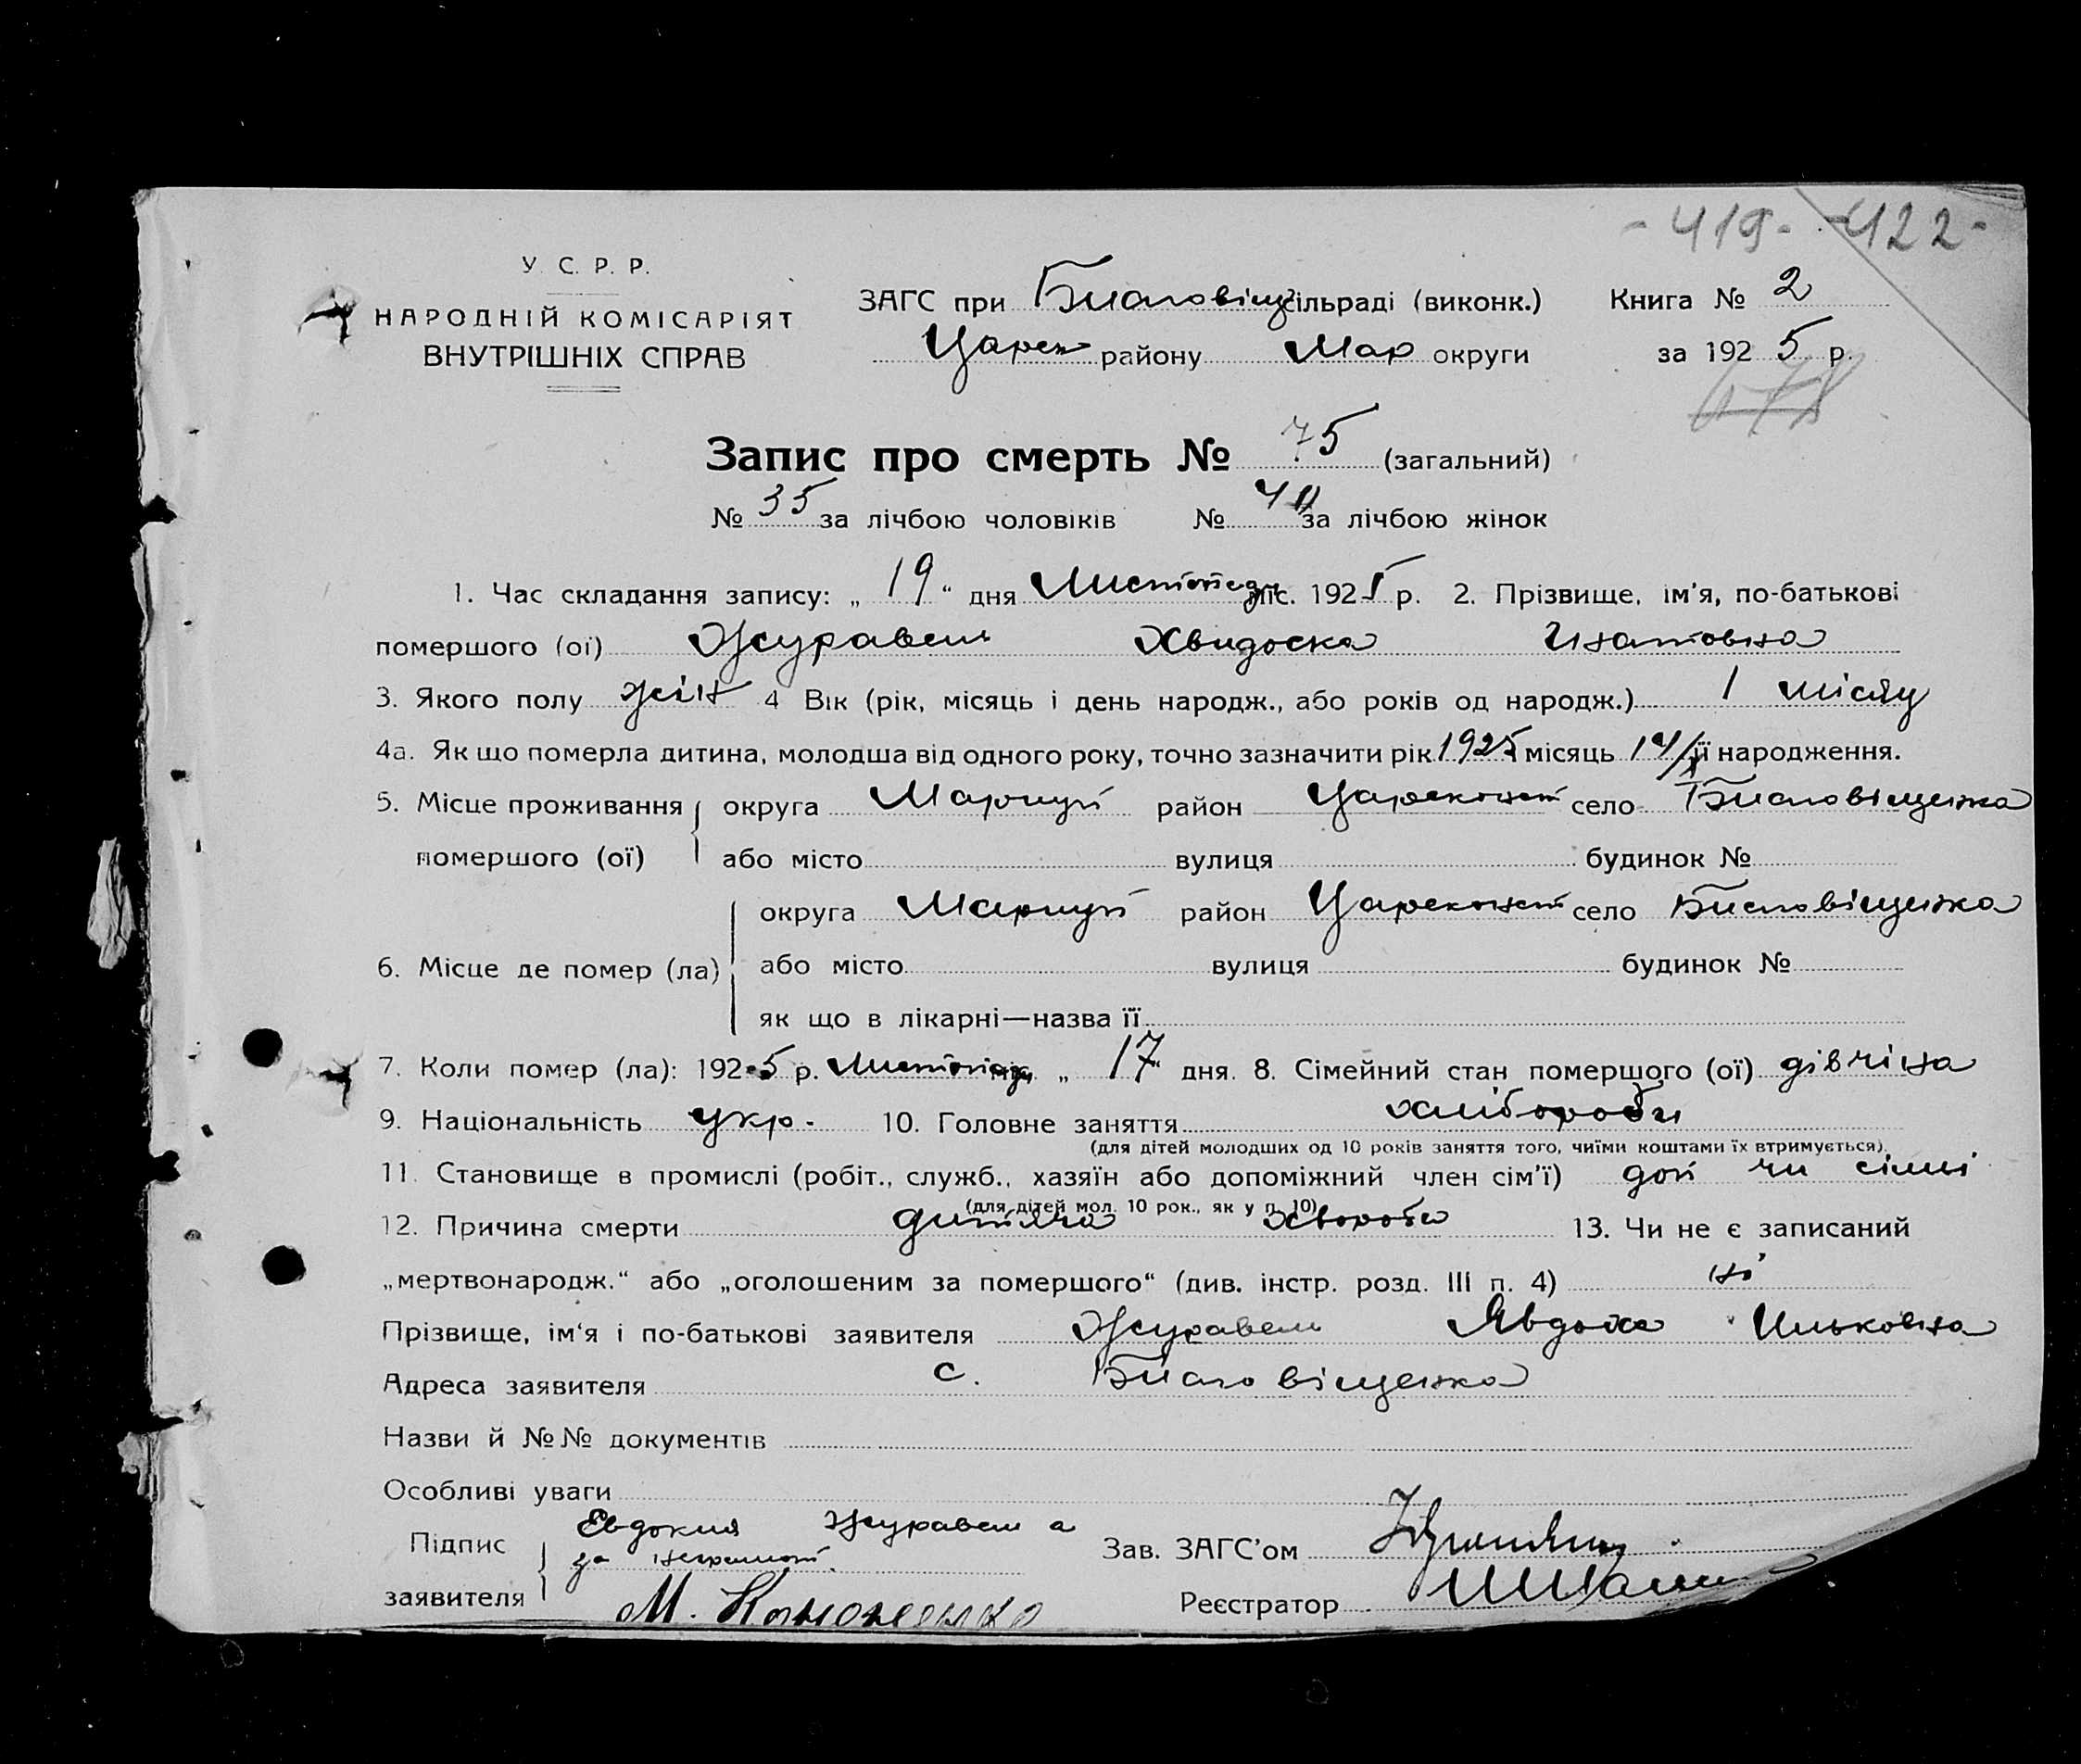 - 419 - - 422 -
У. С. Р. Р.
НАРОДНІЙ КОМІСАРІЯТ
ВНУТРІШНІХ СПРАВ
ЗАГС при Благовіщ сільраді (виконк.) Книга № 2
Царек району Мар округи за 1925 р.
Запис про смерть № 75 (загальний)
№ 35 за лічбою чоловіків № 40 за лічбою жінок
1. Час складання запису: „ 19 “ дня Листопад міс. 1925 р. 2. Прізвище, ім'я, по-батькові
помершого (ої) Журавель Хвидоска Игнатовна
3. Якого полу жін 4 Вік (рік, місяць і день народж., або років од народж.) 1 місяц
4а. Як що померла дитина, молодша від одного року, точно зазначити рік 1925 місяць її народження.
5. Місце проживання округа Маріуп район Царекон село Благовіщенка
помершого (ої) або місто вулиця будинок №
округа Маріуп район Царекон село Благовіщенка
6. Місце де помер (ла) або місто вулиця будинок №
як що в лікарні—назва її
7. Коли помер (ла): 1925 р. Листопад „ 17 “ дня. 8. Сімейний стан помершого (ої) дівчіна
9. Національність укр. 10. Головне заняття хлібороби
(для дітей молодших од 10 років заняття того, чиїми коштами їх втримується).
11. Становище в промислі (робіт., служб., хазяїн або допоміжний член сім'ї) доп чл сімі
(для дітей мол. 10 рок., як у п. 10)
12. Причина смерти дитяча хвороба 13. Чи не є записаний
„мертвонародж.“ або „оголошеним за помершого“ (див. інстр. розд. III п. 4) ні
Прізвище, ім'я і по-батькові заявителя Журавель Явдоха Ильковна
Адреса заявителя с. Благовіщенка
Назви й №№ документів
Особливі уваги
Підпис Евдокия Журавель а
за неграмот. Зав. ЗАГС'ом
заявителя М. Кононенко Реєстратор